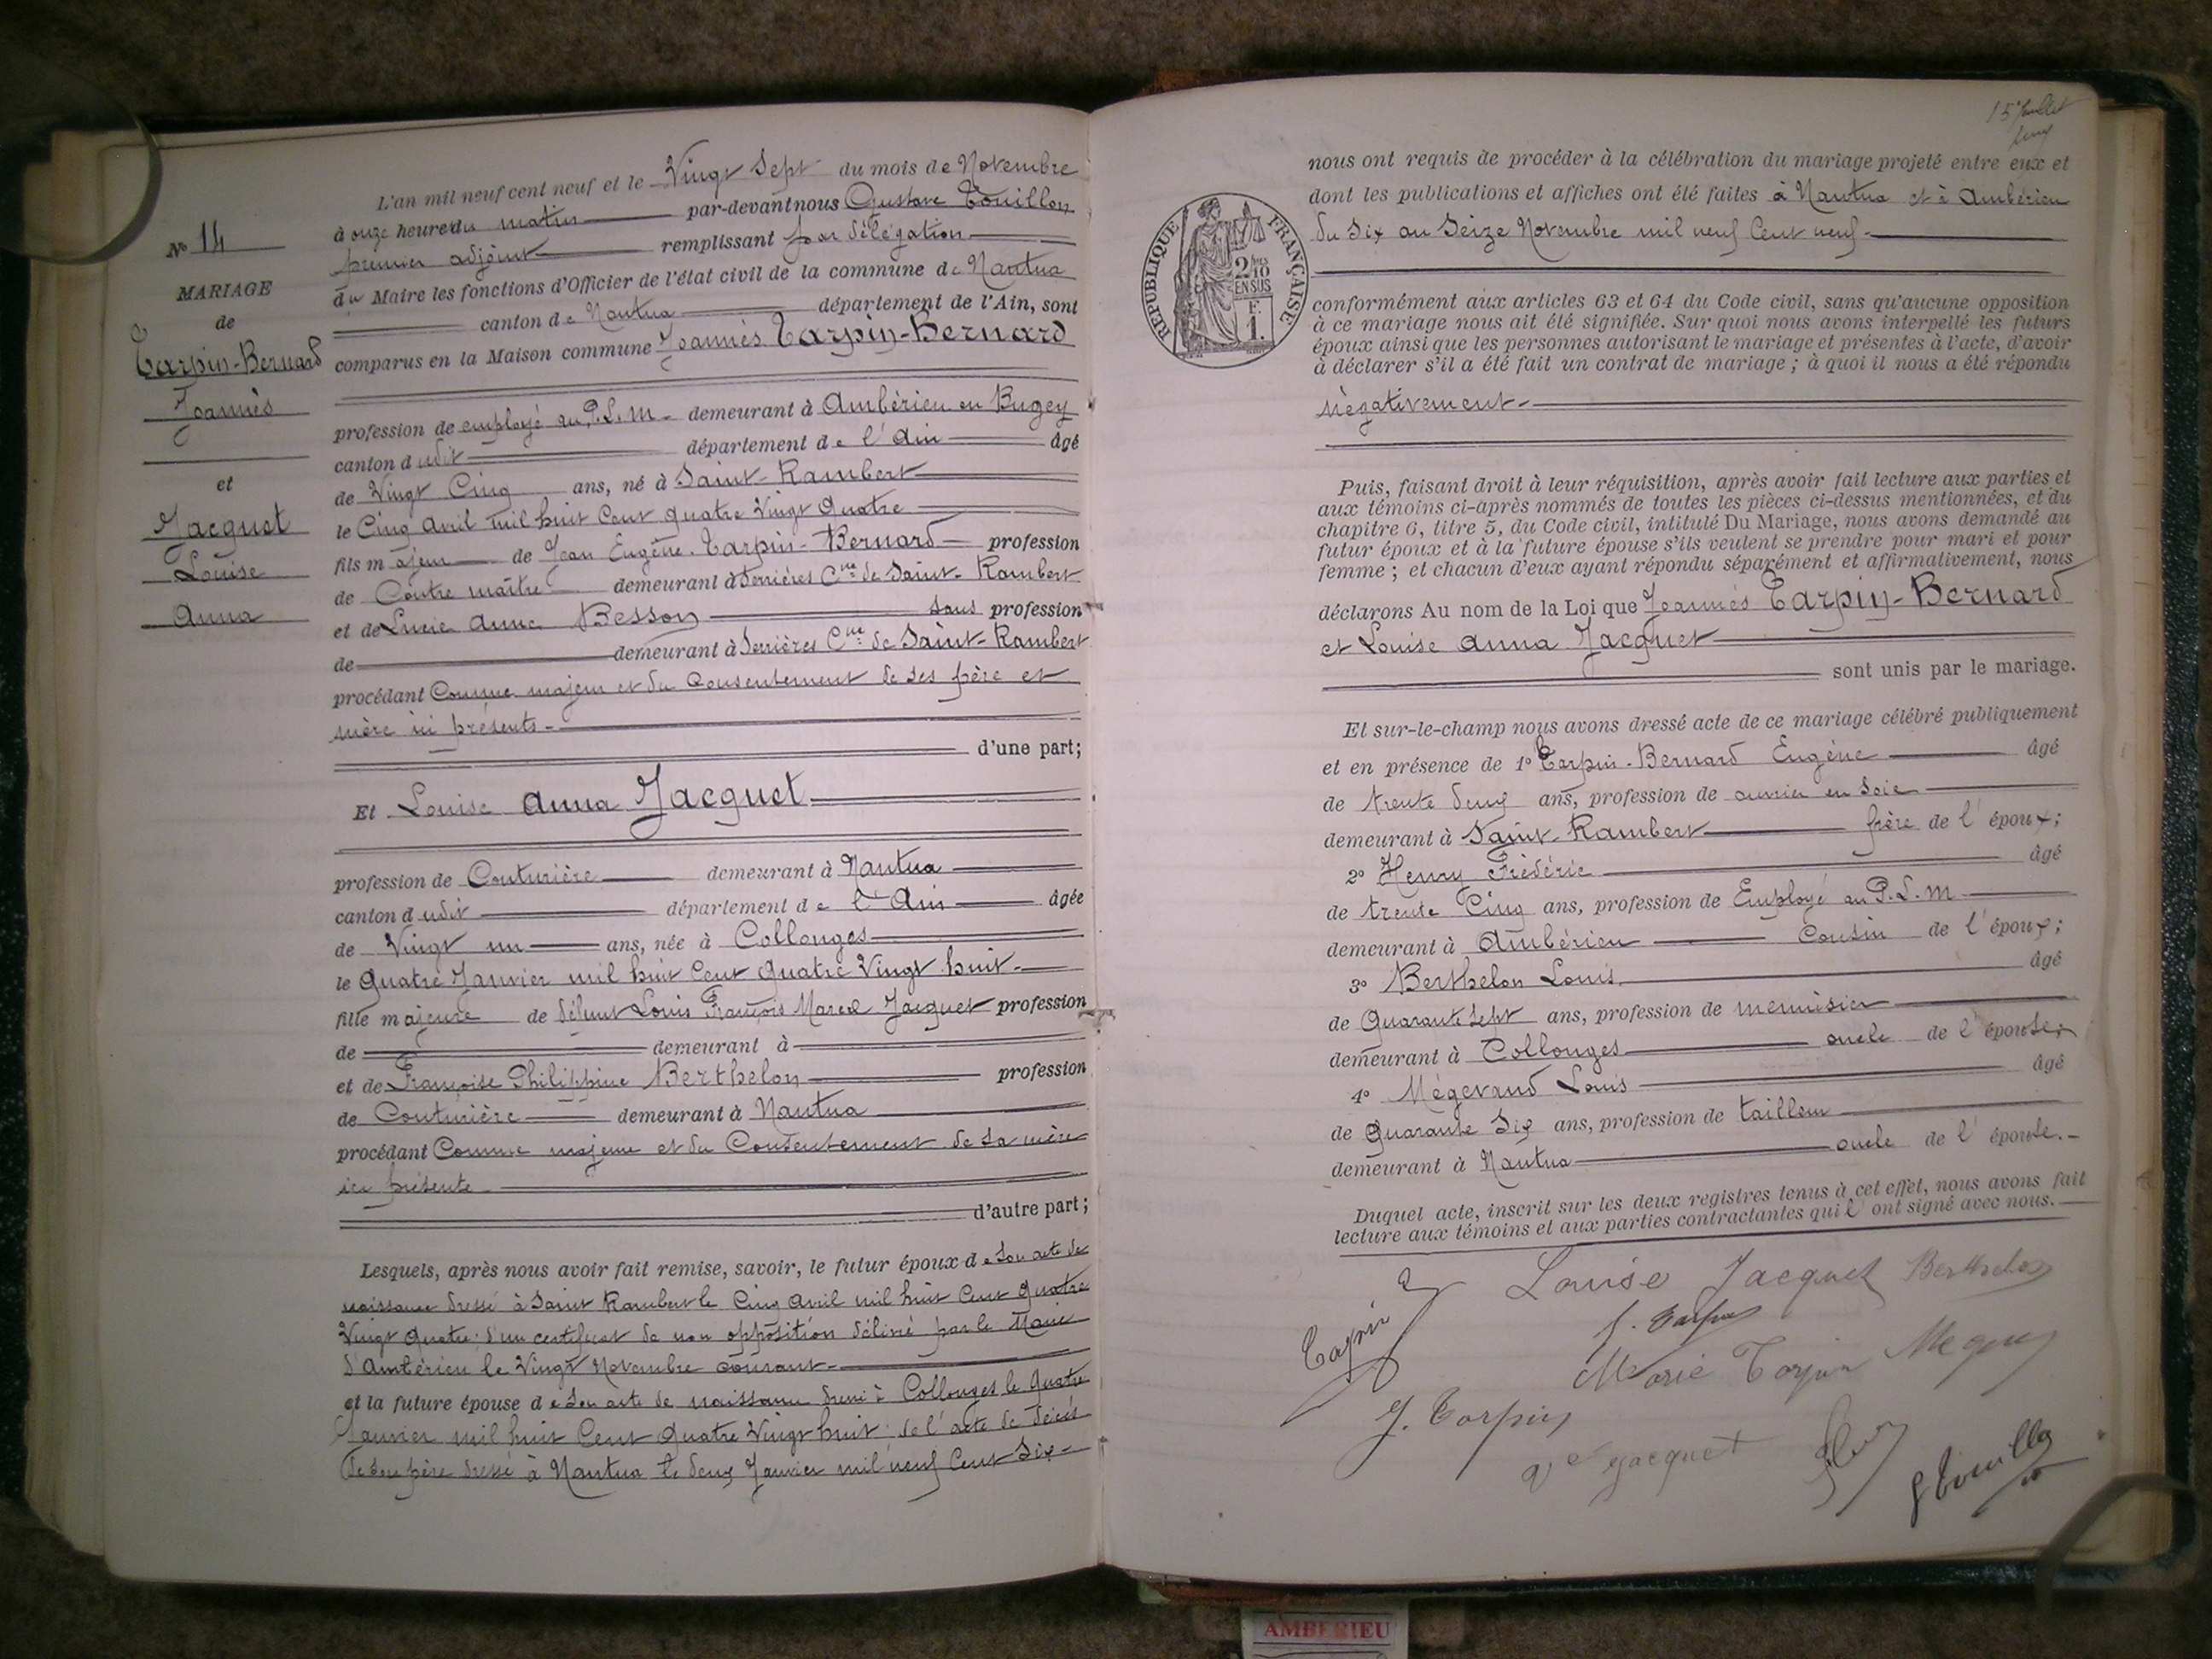 N° 14
MARIAGE
de
Tarpin-Bernard
Joannès
et
Jacquet
Louise
Anna
L'an mil neuf cent neuf et le Vingt Sept du mois de Novembre
à onze heures du matin par-devant nous Gustave Touillon
premier adjoint remplissant par délégation
du Maire les fonctions d'Officier de l'état civil de la commune de Nantua
canton de Nantua département de l'Ain, sont
comparus en la Maison commune Joannès Tarpin-Bernard
profession de employé au P.L.M. demeurant à Ambérieu en Bugey
canton dudit département de l'Ain âgé
de Vingt Cinq ans, né à Saint-Rambert
le Cinq Avril mil huit Cent quatre Vingt Quatre
fils majeur de Jean Eugène Tarpin-Bernard profession
de Contre maître demeurant à Serrières Cne de Saint-Rambert
et de Lucie Anne Besson sans profession
de demeurant à Serrières Cne de Saint-Rambert
procédant Comme majeur et du Consentement de ses père et
mère ici présents
d'une part;
Et Louise Anna Jacquet
profession de Couturière demeurant à Nantua
canton dudit département de l'Ain âgée
de Vingt un ans, née à Collonges
le Quatre Janvier mil huit Cent Quatre Vingt huit
fille majeure de défunt Louis François Marcel Jacquet profession
de demeurant à
et de Françoise Philippine Berthelon profession
de Couturière demeurant à Nantua
procédant Comme majeure et du Consentement de sa mère
ici présente
d'autre part;
Lesquels, après nous avoir fait remise, savoir, le futur époux de son acte de
naissance dressé à Saint Rambert le Cinq Avril mil huit Cent Quatre
Vingt Quatre; d'un certificat de non opposition délivré par le Maire
d'Ambérieu le Vingt Novembre courant
et la future épouse de son acte de naissance dressé à Collonges le Quatre
Janvier mil huit Cent Quatre Vingt huit; de l'acte de décès
de son père dressé à Nantua le deux Janvier mil neuf Cent Six
15e feuillet
RÉPUBLIQUE FRANÇAISE
2/10 EN SUS
F. 1.
nous ont requis de procéder à la célébration du mariage projeté entre eux et
dont les publications et affiches ont été faites à Nantua et à Ambérieu
du Six au Seize Novembre mil neuf Cent neuf
conformément aux articles 63 et 64 du Code civil, sans qu'aucune opposition
à ce mariage nous ait été signifiée. Sur quoi nous avons interpellé les futurs
époux ainsi que les personnes autorisant le mariage et présentes à l'acte, d'avoir
à déclarer s'il a été fait un contrat de mariage; à quoi il nous a été répondu
négativement
Puis, faisant droit à leur réquisition, après avoir fait lecture aux parties et
aux témoins ci-après nommés de toutes les pièces ci-dessus mentionnées, et du
chapitre 6, titre 5, du Code civil, intitulé Du Mariage, nous avons demandé au
futur époux et à la future épouse s'ils veulent se prendre pour mari et pour
femme; et chacun d'eux ayant répondu séparément et affirmativement, nous
déclarons Au nom de la Loi que Joannès Tarpin-Bernard
et Louise Anna Jacquet
sont unis par le mariage.
Et sur-le-champ nous avons dressé acte de ce mariage célébré publiquement
et en présence de 1° Tarpin-Bernard Eugène âgé
de trente deux ans, profession de ouvrier en soie
demeurant à Saint-Rambert frère de l'époux;
2° Henry Frédéric âgé
de trente Cinq ans, profession de Employé au P.L.M
demeurant à Ambérieu Cousin de l'époux;
3° Berthelon Louis âgé
de Quarante sept ans, profession de menuisier
demeurant à Collonges oncle de l'épouse;
4° Mégevand Louis âgé
de Quarante Six ans, profession de tailleur
demeurant à Nantua oncle de l'épouse.
Duquel acte, inscrit sur les deux registres tenus à cet effet, nous avons fait
lecture aux témoins et aux parties contractantes qui l'ont signé avec nous.
Louise Jacquet Berthelon
Tarpin
Marie Tarpin
J. Tarpin
Ve Jacquet
G Touillon
AMBERIEU